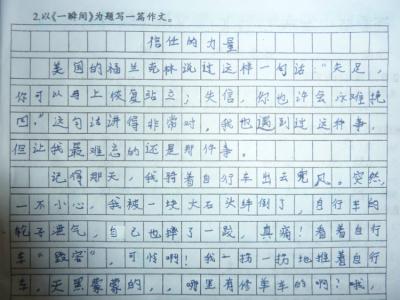 2.以《一瞬间》为题写一篇作文。
信任的力量
美国的福兰克林说过这样一句话:“失足,
你可以马上恢复站立;失信,你也许会永难挽
回。”这句话讲得非常对,我也遇到过这种事,
但让我最难忘的还是那件事。
记得那天,我骑着自行车出去兜风。突然,
一不小心,我被一块大石头绊倒了,自行车的
轮子泄气,自己也摔了一跤,真痛!看着自行
车“毁容”,可怜啊!我一拐一拐地推着自行
车,天黑蒙蒙的,哪里有修单车的啊?哦,就